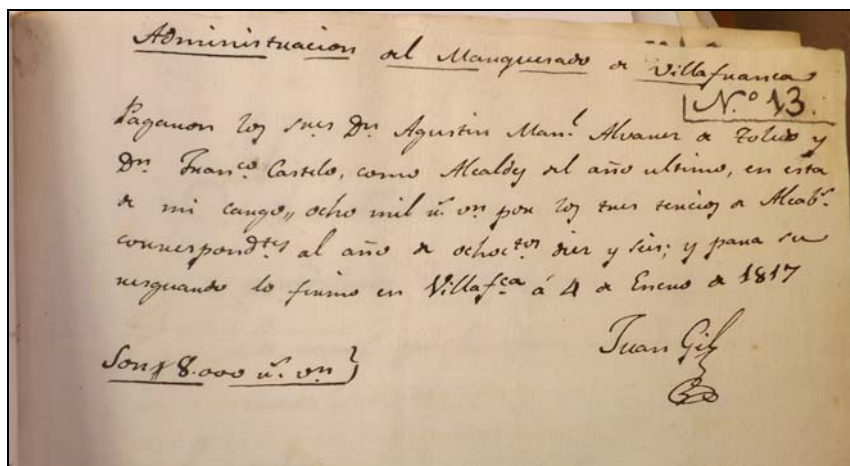 Administracion del Marquesado de Villafranca
N.º 13.
Pagaron los sres Dn Agustin Man.l Alvarez de Toledo y
Dn Fran.co Castelo, como Alcaldes del año ultimo, en esta
de mi cargo,, ocho mil rs. vn por los tres tercios de Alcab.s
correspond.tes al año de ochoc.tos diez y seis; y para su
resguardo lo firmo en Villaf.ca á 4 de Enero de 1817
Juan Gil
Son # 8.000 rs. vn }